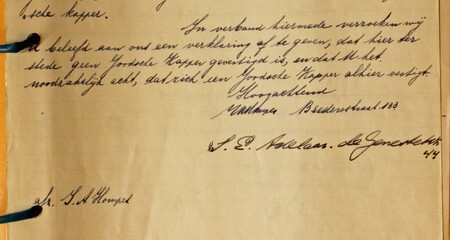 sche kapper.
In verband hiermede verzoeken wij
U beleefd aan ons een verklaring af te geven, dat hier ter
stede geen Joodsche Kapper gevestigd is, en dat U het
noodzakelijk acht, dat zich een Joodsche Kapper alhier vestigt.
Hoogachtend
Breedestraat
S. E. Adelaar. de Genestetstr
4/4
afz. S. A Hompes